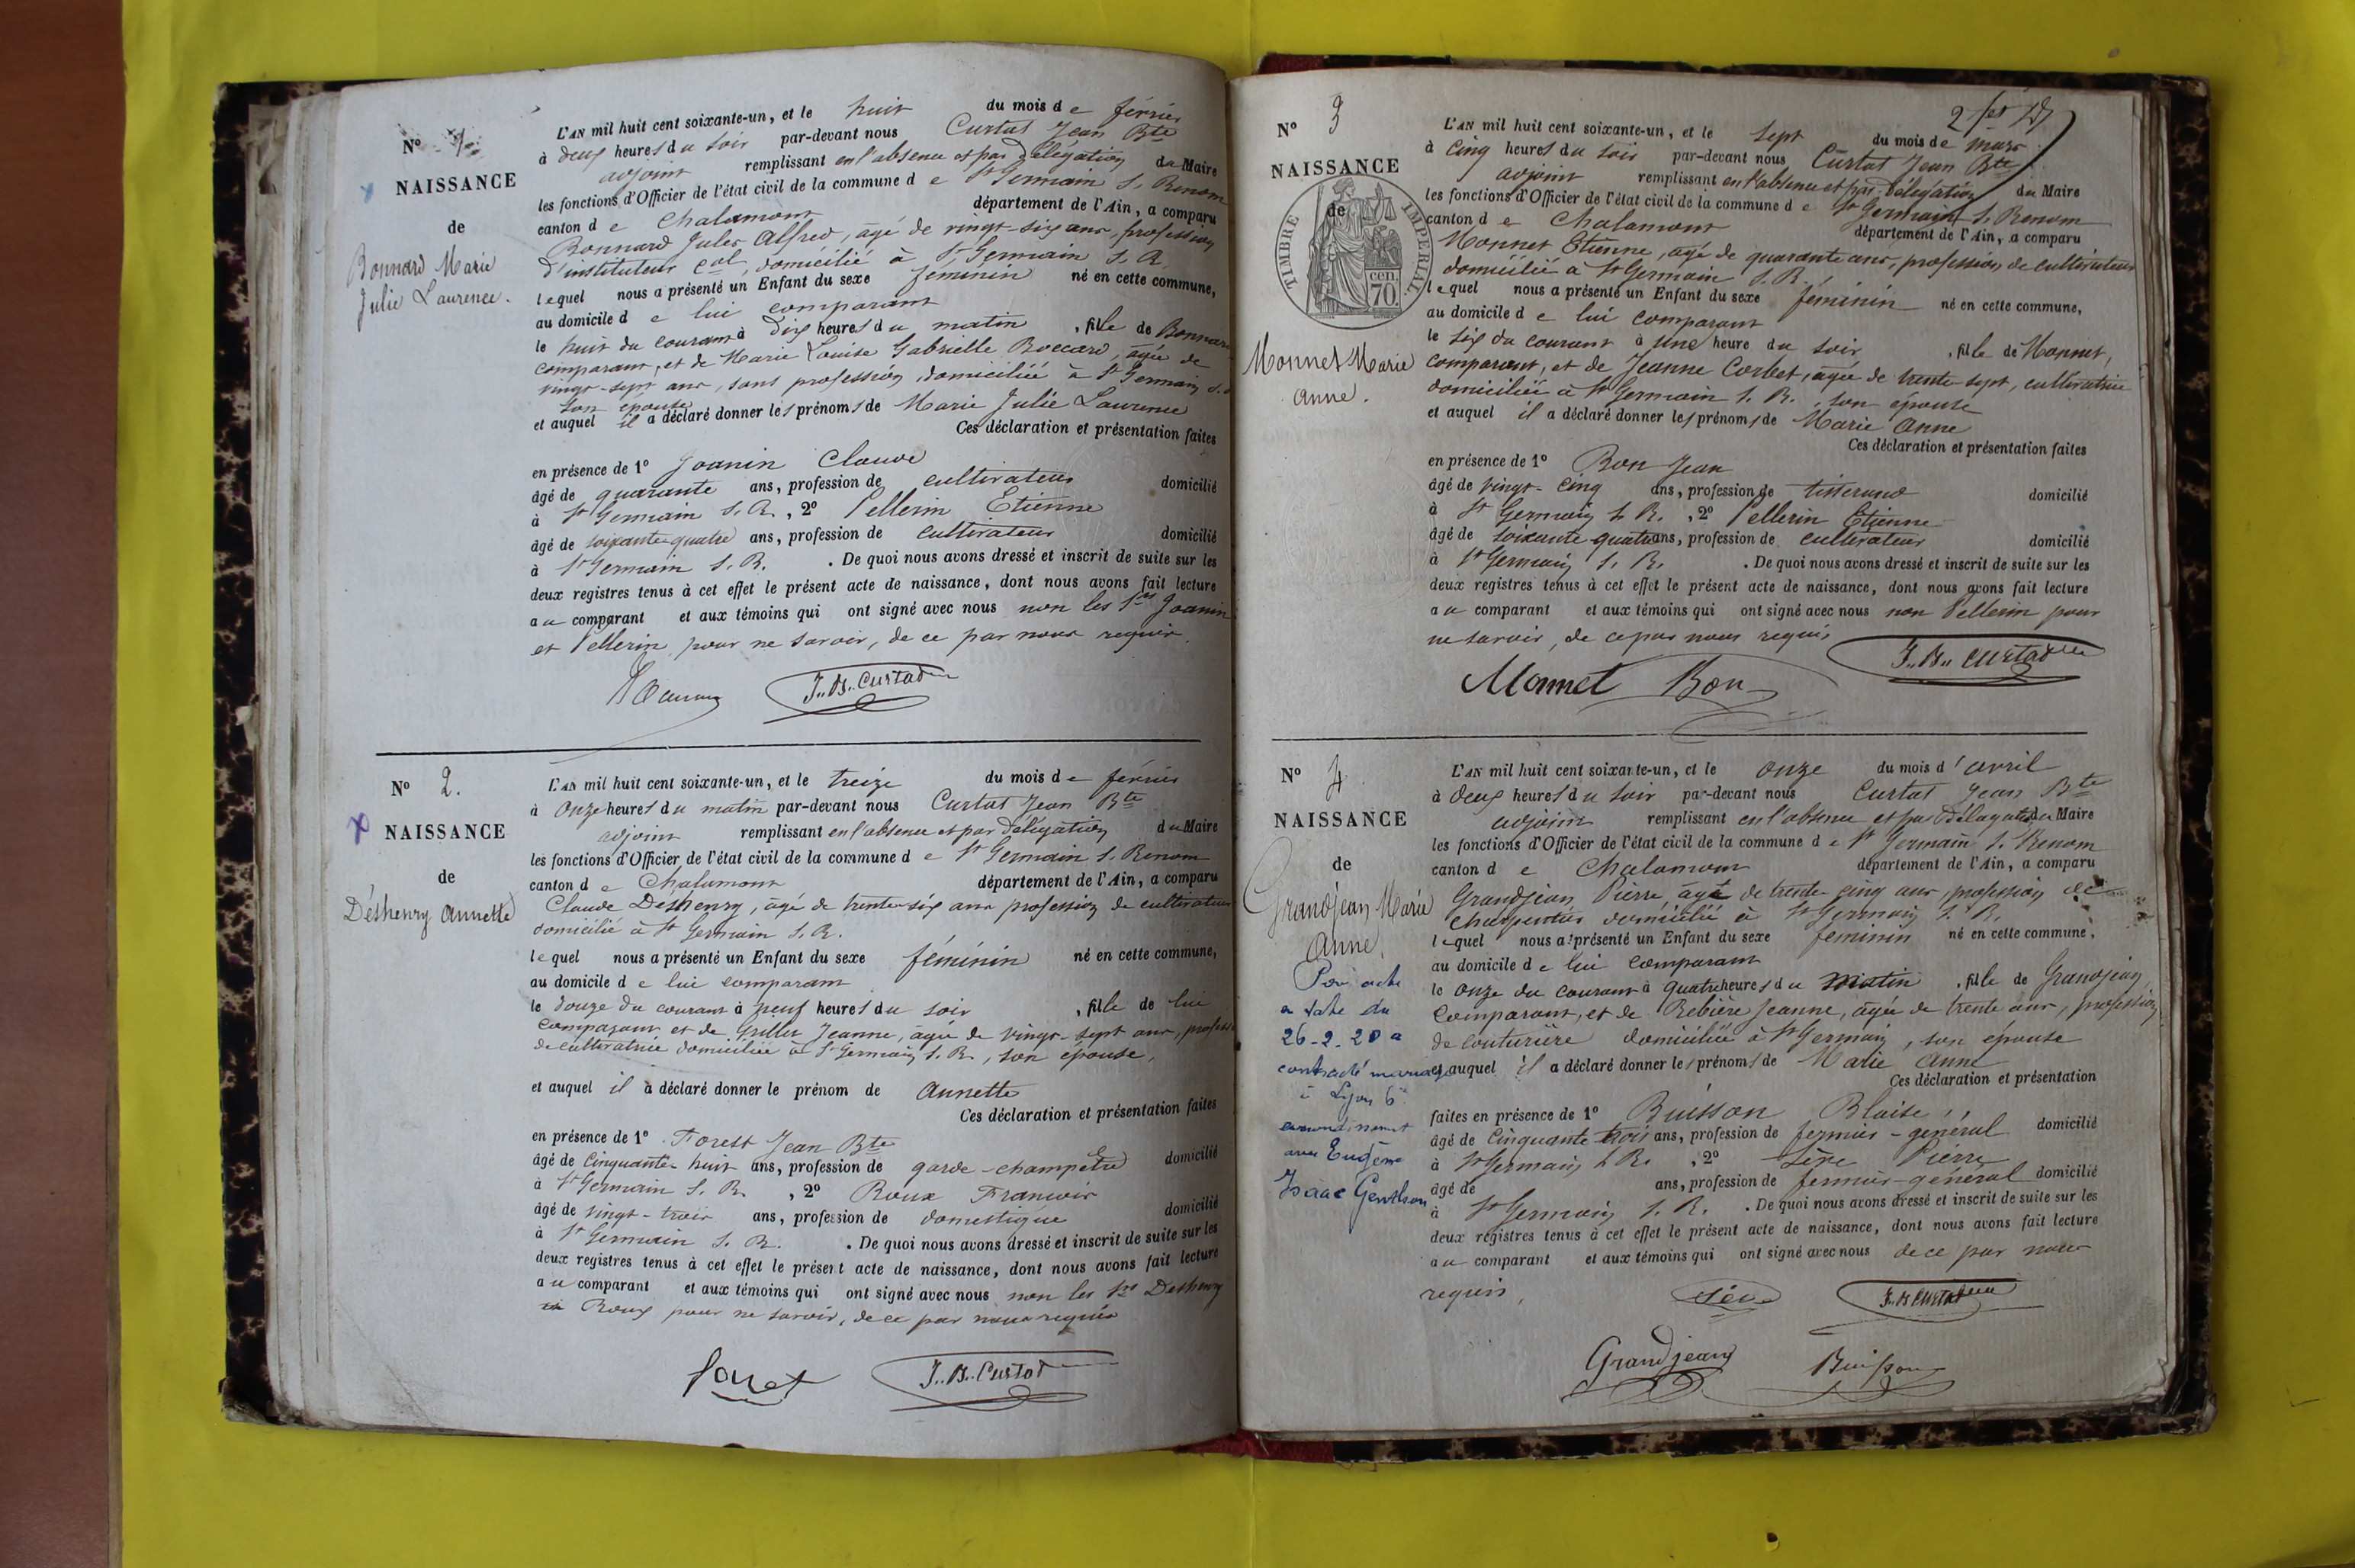 N° 1.
NAISSANCE
de
Bonnard Marie
Julie Laurence.
L'AN mil huit cent soixante-un, et le huit du mois de février
à deux heures du soir par-devant nous Curtat Jean Bte
adjoint remplissant en l'absence et par délégation du Maire
les fonctions d'Officier de l'état civil de la commune de St Germain S. Renom
canton de Chalamont département de l'Ain, a comparu
Bonnard Jules Alfred, âgé de vingt-six ans, profession
d'instituteur cal, domicilié à St Germain S. R.
lequel nous a présenté un Enfant du sexe féminin né en cette commune,
au domicile de lui comparant
le huit du courant à dix heures du matin, fille de Bonnard
comparant, et de Marie Louise Gabrielle Boccard, âgée de
vingt-sept ans, sans profession, domiciliée à St Germain S. R.
son épouse
et auquel il a déclaré donner les prénoms de Marie Julie Laurence
Ces déclaration et présentation faites
en présence de 1° Joanin Claude
âgé de quarante ans, profession de cultivateur domicilié
à St Germain S. R., 2° Pellerin Etienne
âgé de soixante quatre ans, profession de cultivateur domicilié
à St Germain S. R. . De quoi nous avons dressé et inscrit de suite sur les
deux registres tenus à cet effet le présent acte de naissance, dont nous avons fait lecture
au comparant et aux témoins qui ont signé avec nous non les Srs Joanin
et Pellerin pour ne savoir, de ce par nous requis.
J.. B.. Curtad
N° 2.
NAISSANCE
de
Déshenry Annette
L'AN mil huit cent soixante-un, et le treize du mois de février
à onze heures du matin par-devant nous Curtat Jean Bte
adjoint remplissant en l'absence et par délégation du Maire
les fonctions d'Officier de l'état civil de la commune de St Germain S. Renom
canton de Chalamont département de l'Ain, a comparu
Claude Déshenry, âgé de trente-six ans profession de cultivateur
domicilié à St Germain S. R.
lequel nous a présenté un Enfant du sexe féminin né en cette commune,
au domicile de lui comparant
le douze du courant à neuf heures du soir, fille de lui
comparant et de Grillet Jeanne, âgée de vingt-sept ans, profession
de cultivatrice domiciliée à St Germain S. R., son épouse,
et auquel il a déclaré donner le prénom de Annette
Ces déclaration et présentation faites
en présence de 1° Forest Jean Bte
âgé de cinquante-huit ans, profession de garde-champêtre domicilié
à St Germain S. R., 2° Roux François
âgé de vingt-trois ans, profession de domestique domicilié
à St Germain S. R. . De quoi nous avons dressé et inscrit de suite sur les
deux registres tenus à cet effet le présent acte de naissance, dont nous avons fait lecture
au comparant et aux témoins qui ont signé avec nous non les Srs Deshenry
et Roux pour ne savoir, de ce par nous requis
Foret J.. B.. Curtad
2 fet
N° 3
NAISSANCE
de
TIMBRE IMPERIAL
70 cen.
Monnet Marie
Anne.
L'AN mil huit cent soixante-un, et le sept du mois de mars
à cinq heures du soir par-devant nous Curtat Jean Bte
adjoint remplissant en l'absence et par délégation du Maire
les fonctions d'Officier de l'état civil de la commune de St Germain S. Renom
canton de Chalamont département de l'Ain, a comparu
Monnet Etienne, âgé de quarante ans, profession de cultivateur
domicilié à St Germain S. R.
lequel nous a présenté un Enfant du sexe féminin né en cette commune,
au domicile de lui comparant
le six du courant à une heure du soir, fille de Monnet,
comparant, et de Jeanne Corbet, âgée de trente sept, cultivatrice
domiciliée à St Germain S. R., son épouse
et auquel il a déclaré donner les prénoms de Marie Anne
Ces déclaration et présentation faites
en présence de 1° Bon Jean
âgé de vingt-cinq ans, profession de tisserand domicilié
à St Germain S. R., 2° Pellerin Etienne
âgé de soixante quatre ans, profession de cultivateur domicilié
à St Germain S. R. . De quoi nous avons dressé et inscrit de suite sur les
deux registres tenus à cet effet le présent acte de naissance, dont nous avons fait lecture
au comparant et aux témoins qui ont signé avec nous non Pellerin pour
ne savoir, de ce par nous requis
Monnet Bon J.. B.. Curtad
N° 4
NAISSANCE
de
Grandjean Marie
Anne.
Par acte
en date du
26-2-20 a
contracté mariage
à Lyon 6e
arrondissement
avec Eugène
Isaac Genthon
L'AN mil huit cent soixante-un, et le onze du mois d'avril
à deux heures du soir par-devant nous Curtat Jean Bte
adjoint remplissant en l'absence et par délégation du Maire
les fonctions d'Officier de l'état civil de la commune de St Germain S. Renom
canton de Chalamont département de l'Ain, a comparu
Grandjean Pierre âgé de trente-cinq ans, profession de
charpentier domicilié à St Germain S. R.
lequel nous a présenté un Enfant du sexe féminin né en cette commune,
au domicile de lui comparant
le onze du courant à quatre heures du matin, fille de Grandjean
comparant, et de Rebière Jeanne, âgée de trente ans, profession
de couturière domiciliée à St Germain, son épouse
et auquel il a déclaré donner les prénoms de Marie Anne
Ces déclaration et présentation
faites en présence de 1° Buisson Blaise,
âgé de cinquante trois ans, profession de fermier-général domicilié
à St Germain S. R., 2° Sève Pierre
âgé de ans, profession de fermier-général domicilié
à St Germain S. R. . De quoi nous avons dressé et inscrit de suite sur les
deux registres tenus à cet effet le présent acte de naissance, dont nous avons fait lecture
au comparant et aux témoins qui ont signé avec nous de ce par nous
requis,
Sève J.. B. Curtad
Grandjean Buisson